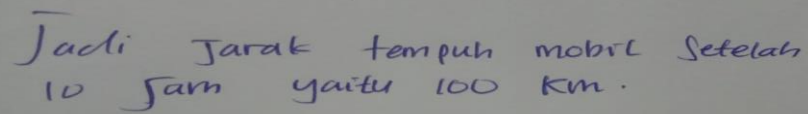 Jadi Jarak tempuh mobil setelah
10 Jam yaitu 100 Km.